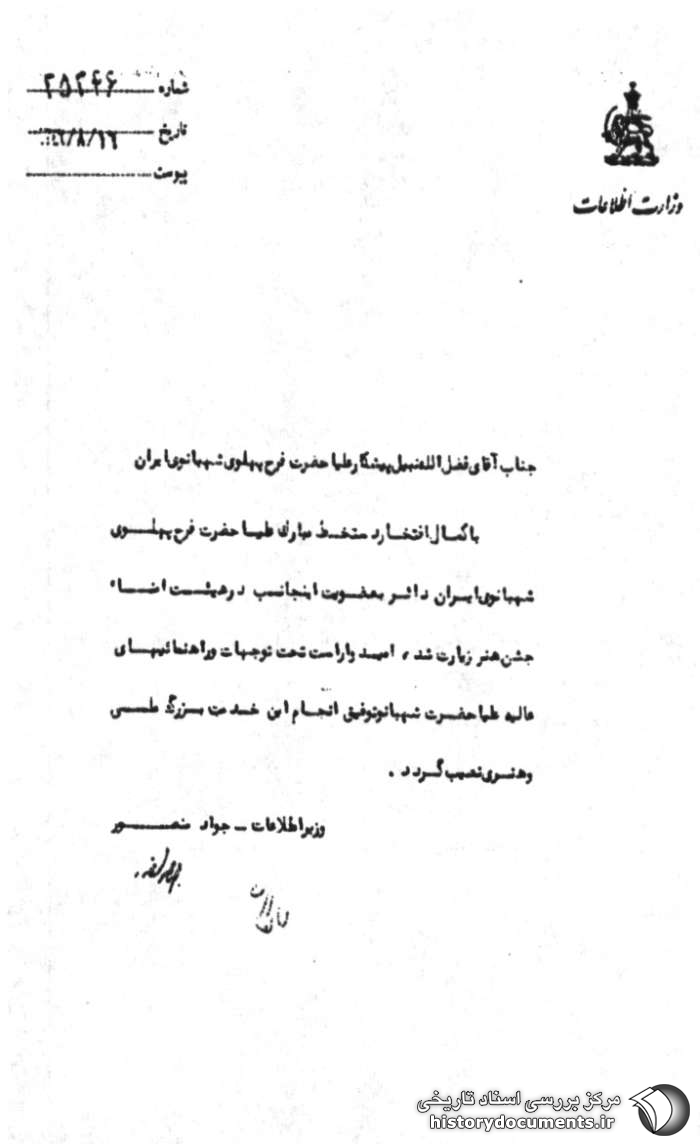 شماره ۲۵۳۴۶
تاریخ
پیوست
وزارت اطلاعات
جناب آقای فضل الله نبیل پیشکار علیا حضرت فرح پهلوی شهبانوی ایران
با کمال افتخار دستخط مبارک علیا حضرت فرح پهلوی
شهبانوی ایران دائر بعضویت اینجانب در هیئت امناء
جشن هنر زیارت شد، امیدوار است تحت توجهات و راهنمائیهای
عالیه علیا حضرت شهبانو توفیق انجام این خدمت بزرگ علمی
و هنری نصیب گردد.
وزیر اطلاعات - جواد منصور
مرکز بررسی اسناد تاریخی
historydocuments.ir